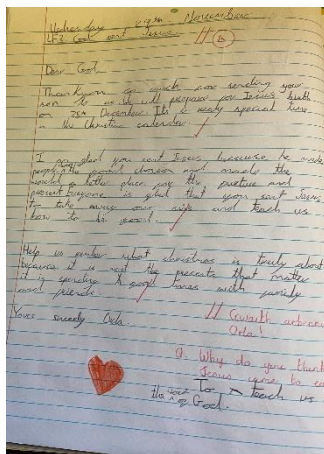 Wednesday November
LF3 God sent Jesus.
Dear God,
Thankyou so much for sending your
son to us we will prepare for Jesus birth
on 25th December. It's a really special time
in the Christian calendar
I am glad you sent Jesus because he made
people the good chosen and made the
world a better place for the and
everyone is glad that you sent Jesus
to take away our sins and teach us
how to be good.
Help us what christmas is truly about
because it is not the presents that matter
it is spending good times with family
and friends.
Yours sincerely Orla.
Orla!
Q. Why do you think
Jesus came to
To teach us
the of God.